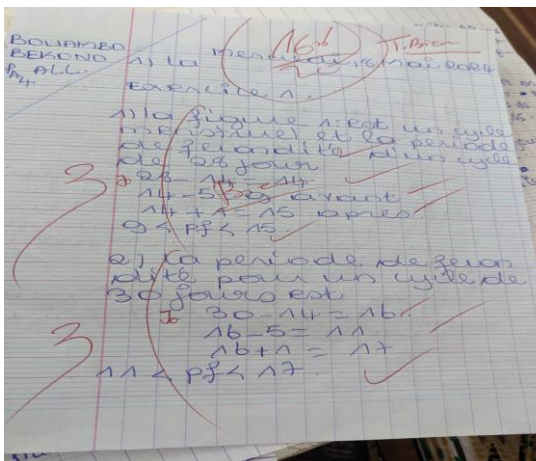 BOUAMBO
BEKONO
P A4 ALL.
16
20
T. Bien
mercredi, 8 mai 2024
Exercice 1.
1) la figure 1: est un cycle
menstruel et la periode
de fecondité d'un cycle
de 28 jour
28 - 14 = 14
14 - 5 = 9 avant
14 + 1 = 15 après
9 < pf < 15.
3
2) La periode de fecon
dité pour un cycle de
30 jours est
30 - 14 = 16
16 - 5 = 11
16 + 1 = 17
11 < pf < 17.
3